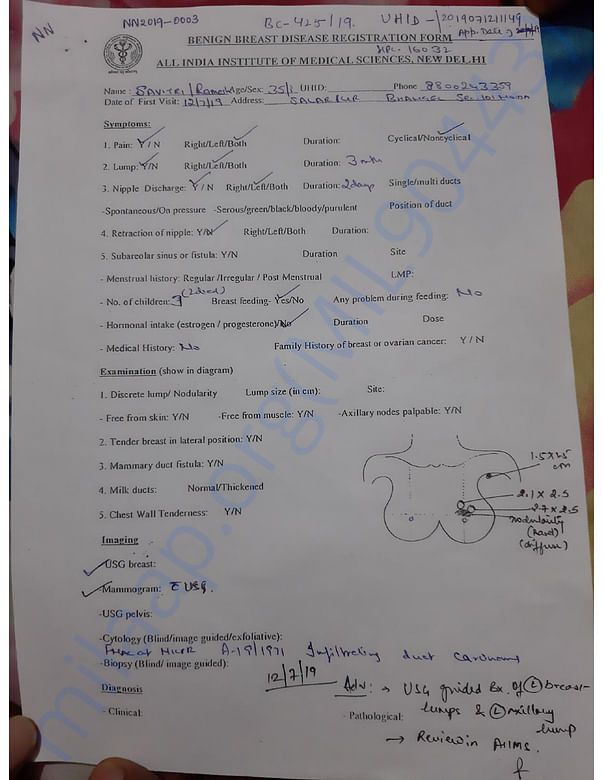 NN
NN2019-0003
BC-425/19.
UHID - 20190721149
BENIGN BREAST DISEASE REGISTRATION FORM
App. Date
HPL. 16032
ALL INDIA INSTITUTE OF MEDICAL SCIENCES, NEW DELHI
Name: SAVITRI / Age/Sex: 35/ UHID: Phone 8800243359
Date of First Visit: 12/7/19 Address: SALARPUR BHANGEL SEC-101 NOIDA
Symptoms:
1. Pain: Y/N Right/Left/Both Duration: Cyclical/Noncyclical
2. Lump: Y/N Right/Left/Both Duration: 3 mths
3. Nipple Discharge: Y/N Right/Left/Both Duration: 2days Single/multi ducts
-Spontaneous/On pressure -Serous/green/black/bloody/purulent Position of duct
4. Retraction of nipple: Y/N Right/Left/Both Duration:
5. Subareolar sinus or fistula: Y/N Duration Site
- Menstrual history: Regular /Irregular / Post Menstrual LMP:
- No. of children: 3 (2died) Breast feeding- Yes/No Any problem during feeding: No
- Hormonal intake (estrogen / progesterone)/No Duration Dose
- Medical History: No Family History of breast or ovarian cancer: Y/N
Examination (show in diagram)
1. Discrete lump/ Nodularity Lump size (in cm): Site:
- Free from skin: Y/N -Free from muscle: Y/N -Axillary nodes palpable: Y/N
2. Tender breast in lateral position: Y/N
3. Mammary duct fistula: Y/N
4. Milk ducts: Normal/Thickened
5. Chest Wall Tenderness: Y/N
1.5x2.5
cm
2.1 x 2.5
2.7 x 2.5
nodularity
(hard)
(diffuse)
Imaging
-USG breast:
-Mammogram: c̄ USG.
-USG pelvis:
-Cytology (Blind/image guided/exfoliative):
FNAC at NICPR A-19/1971 Infiltrating duct carcinoma
-Biopsy (Blind/ image guided):
12/7/19
Diagnosis
Adv: → USG guided Bx. of (L) breast
- Clinical:
- Pathological:
lumps & (L) axillary
lump
→ Review in AIIMS.
milaap.org(MIL90443